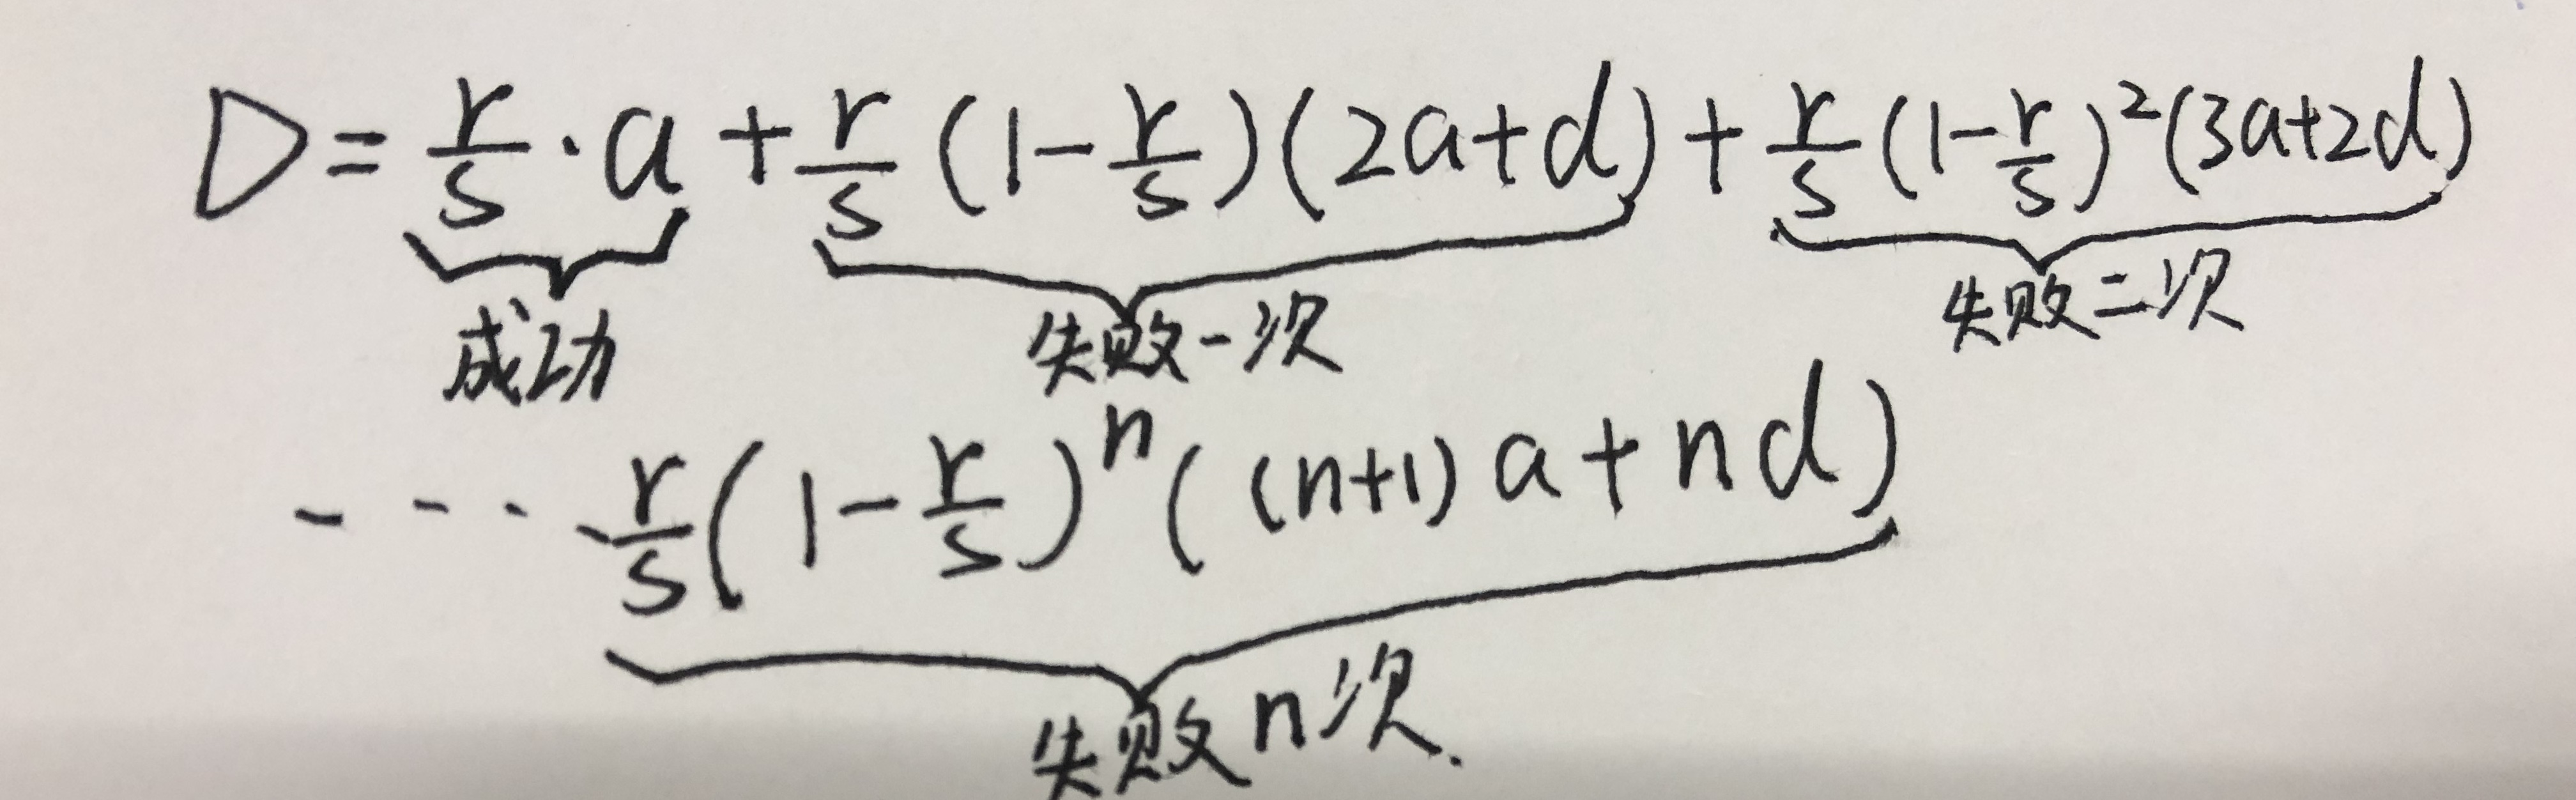 D = r/s · a + r/s (1 - r/s)(2a+d) + r/s (1 - r/s)²(3a+2d)
成功 失败一次 失败二次
- - - - r/s (1 - r/s)ⁿ ( (n+1) a + nd )
失败n次.